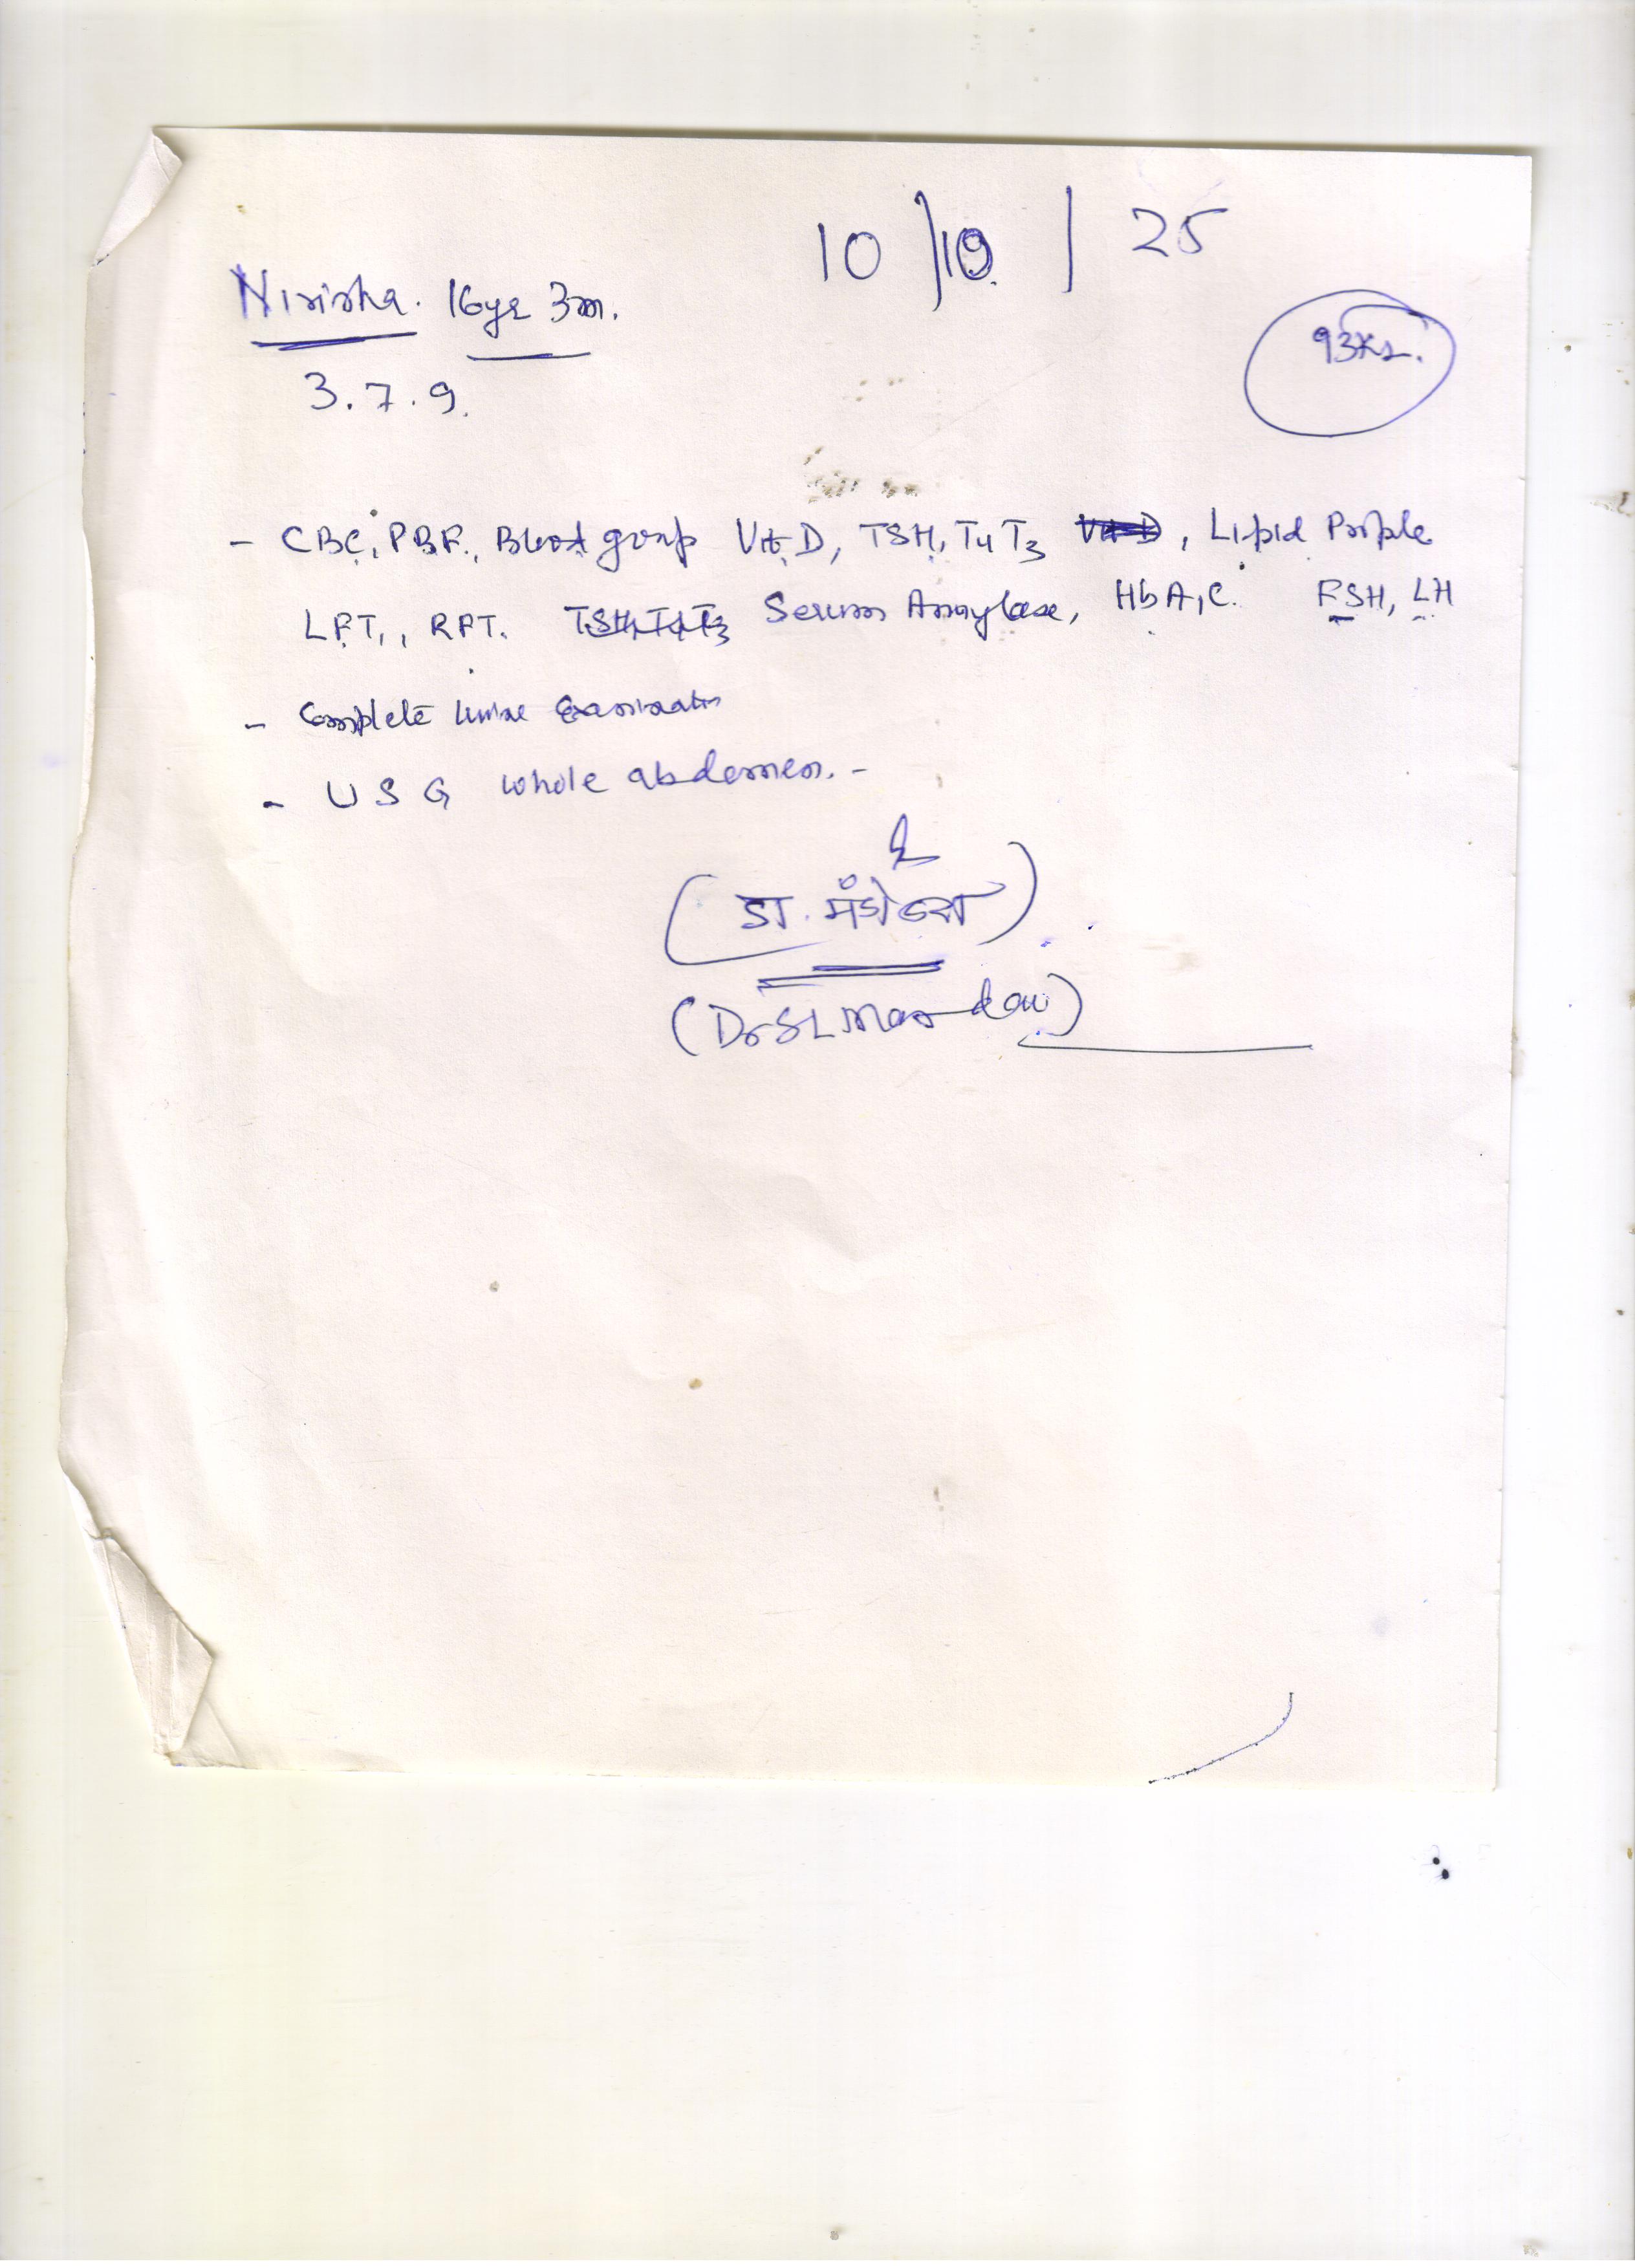 10/10/25
Nirisha. 16yr 3m.
93Kg.
3.7.9.
- CBC, PBF, Blood group Vit D, TSH, T4 T3 Vit D, Lipid Profile
LFT, RFT. TSH, T4 T3 Serum Amylase, HbA1C. FSH, LH
- Complete Urine Examination
- USG whole abdomen. -
(डा.
(Dr SL